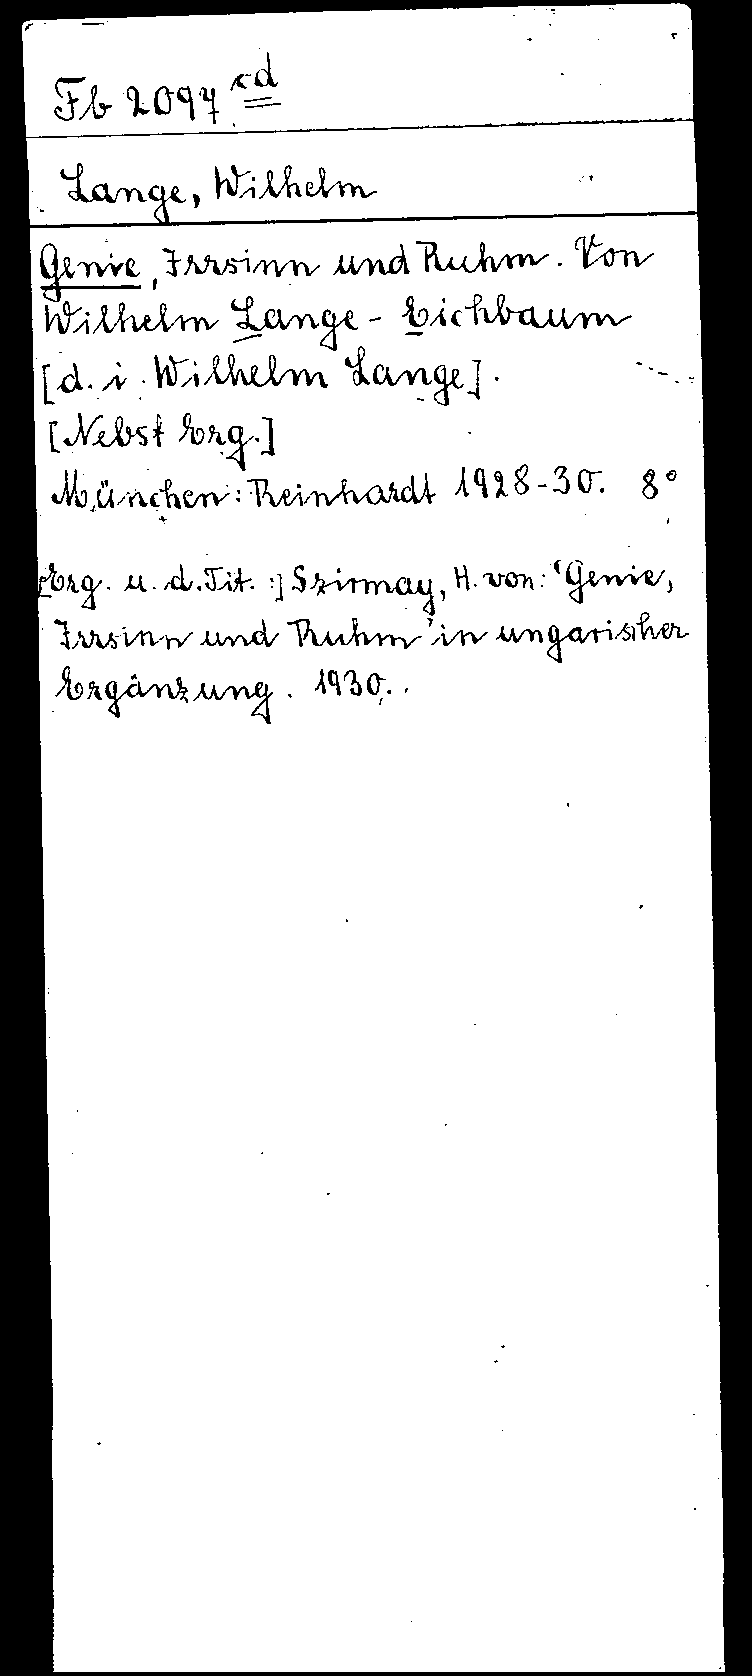 Fb 2097 rd
Lange, Wilhelm
Genie, Irrsinn und Ruhm. Von
Wilhelm Lange-Eichbaum
[d. i. Wilhelm Lange].
[Nebst Erg.]
München: Reinhardt 1928-30. 8°
[Erg. u. d. Tit.:] Szirmay, H. von: 'Genie,
Irrsinn und Ruhm' in ungarischer
Ergänzung. 1930.